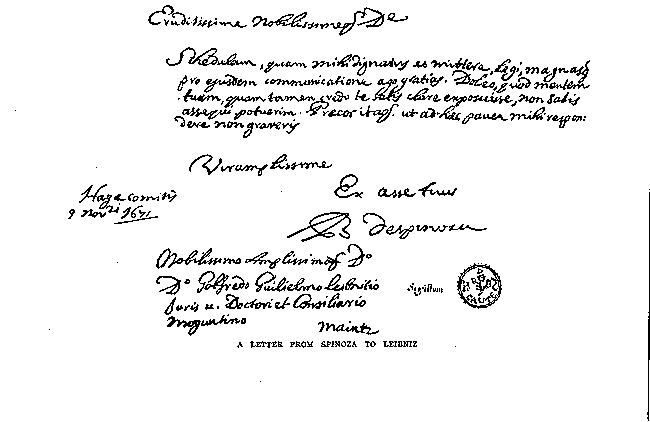 Eruditissime Nobilissimeq₃ Dᵉ
Schedulam, quam mihi dignatus es mittere, legi, magnasq₃
pro ejusdem communicatione ago gratias. Doleo, quod mentem
tuam, quam tamen credo te satis clare exposuisse, non satis
assequi potuerim. Precor itaq₃ ut ad hæc pauca mihi respon:
dere non graveris
Vir amplissime
Ex asse tuus
B despinoza
Hagæ comitis
9 Novᵇʳⁱ 1671
Nobilissimo Amplissimoq₃ Dº
Dº Gotfredo Guilielmo Leibnitio
Juris u. Doctori et Consiliario
Moguntino
Maintz
Sigillum
CAUTE
A LETTER FROM SPINOZA TO LEIBNIZ